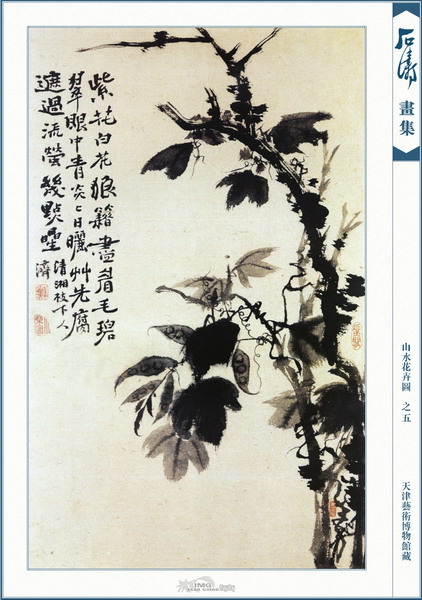 石濤
畫集
紫花白花狼籍畫眉毛碧
翠眼中青炎炎日曬艸先腐
遮過流螢幾點星
清湘枝下人
濟
山水花卉圖 之五
天津藝術博物館藏
IMG